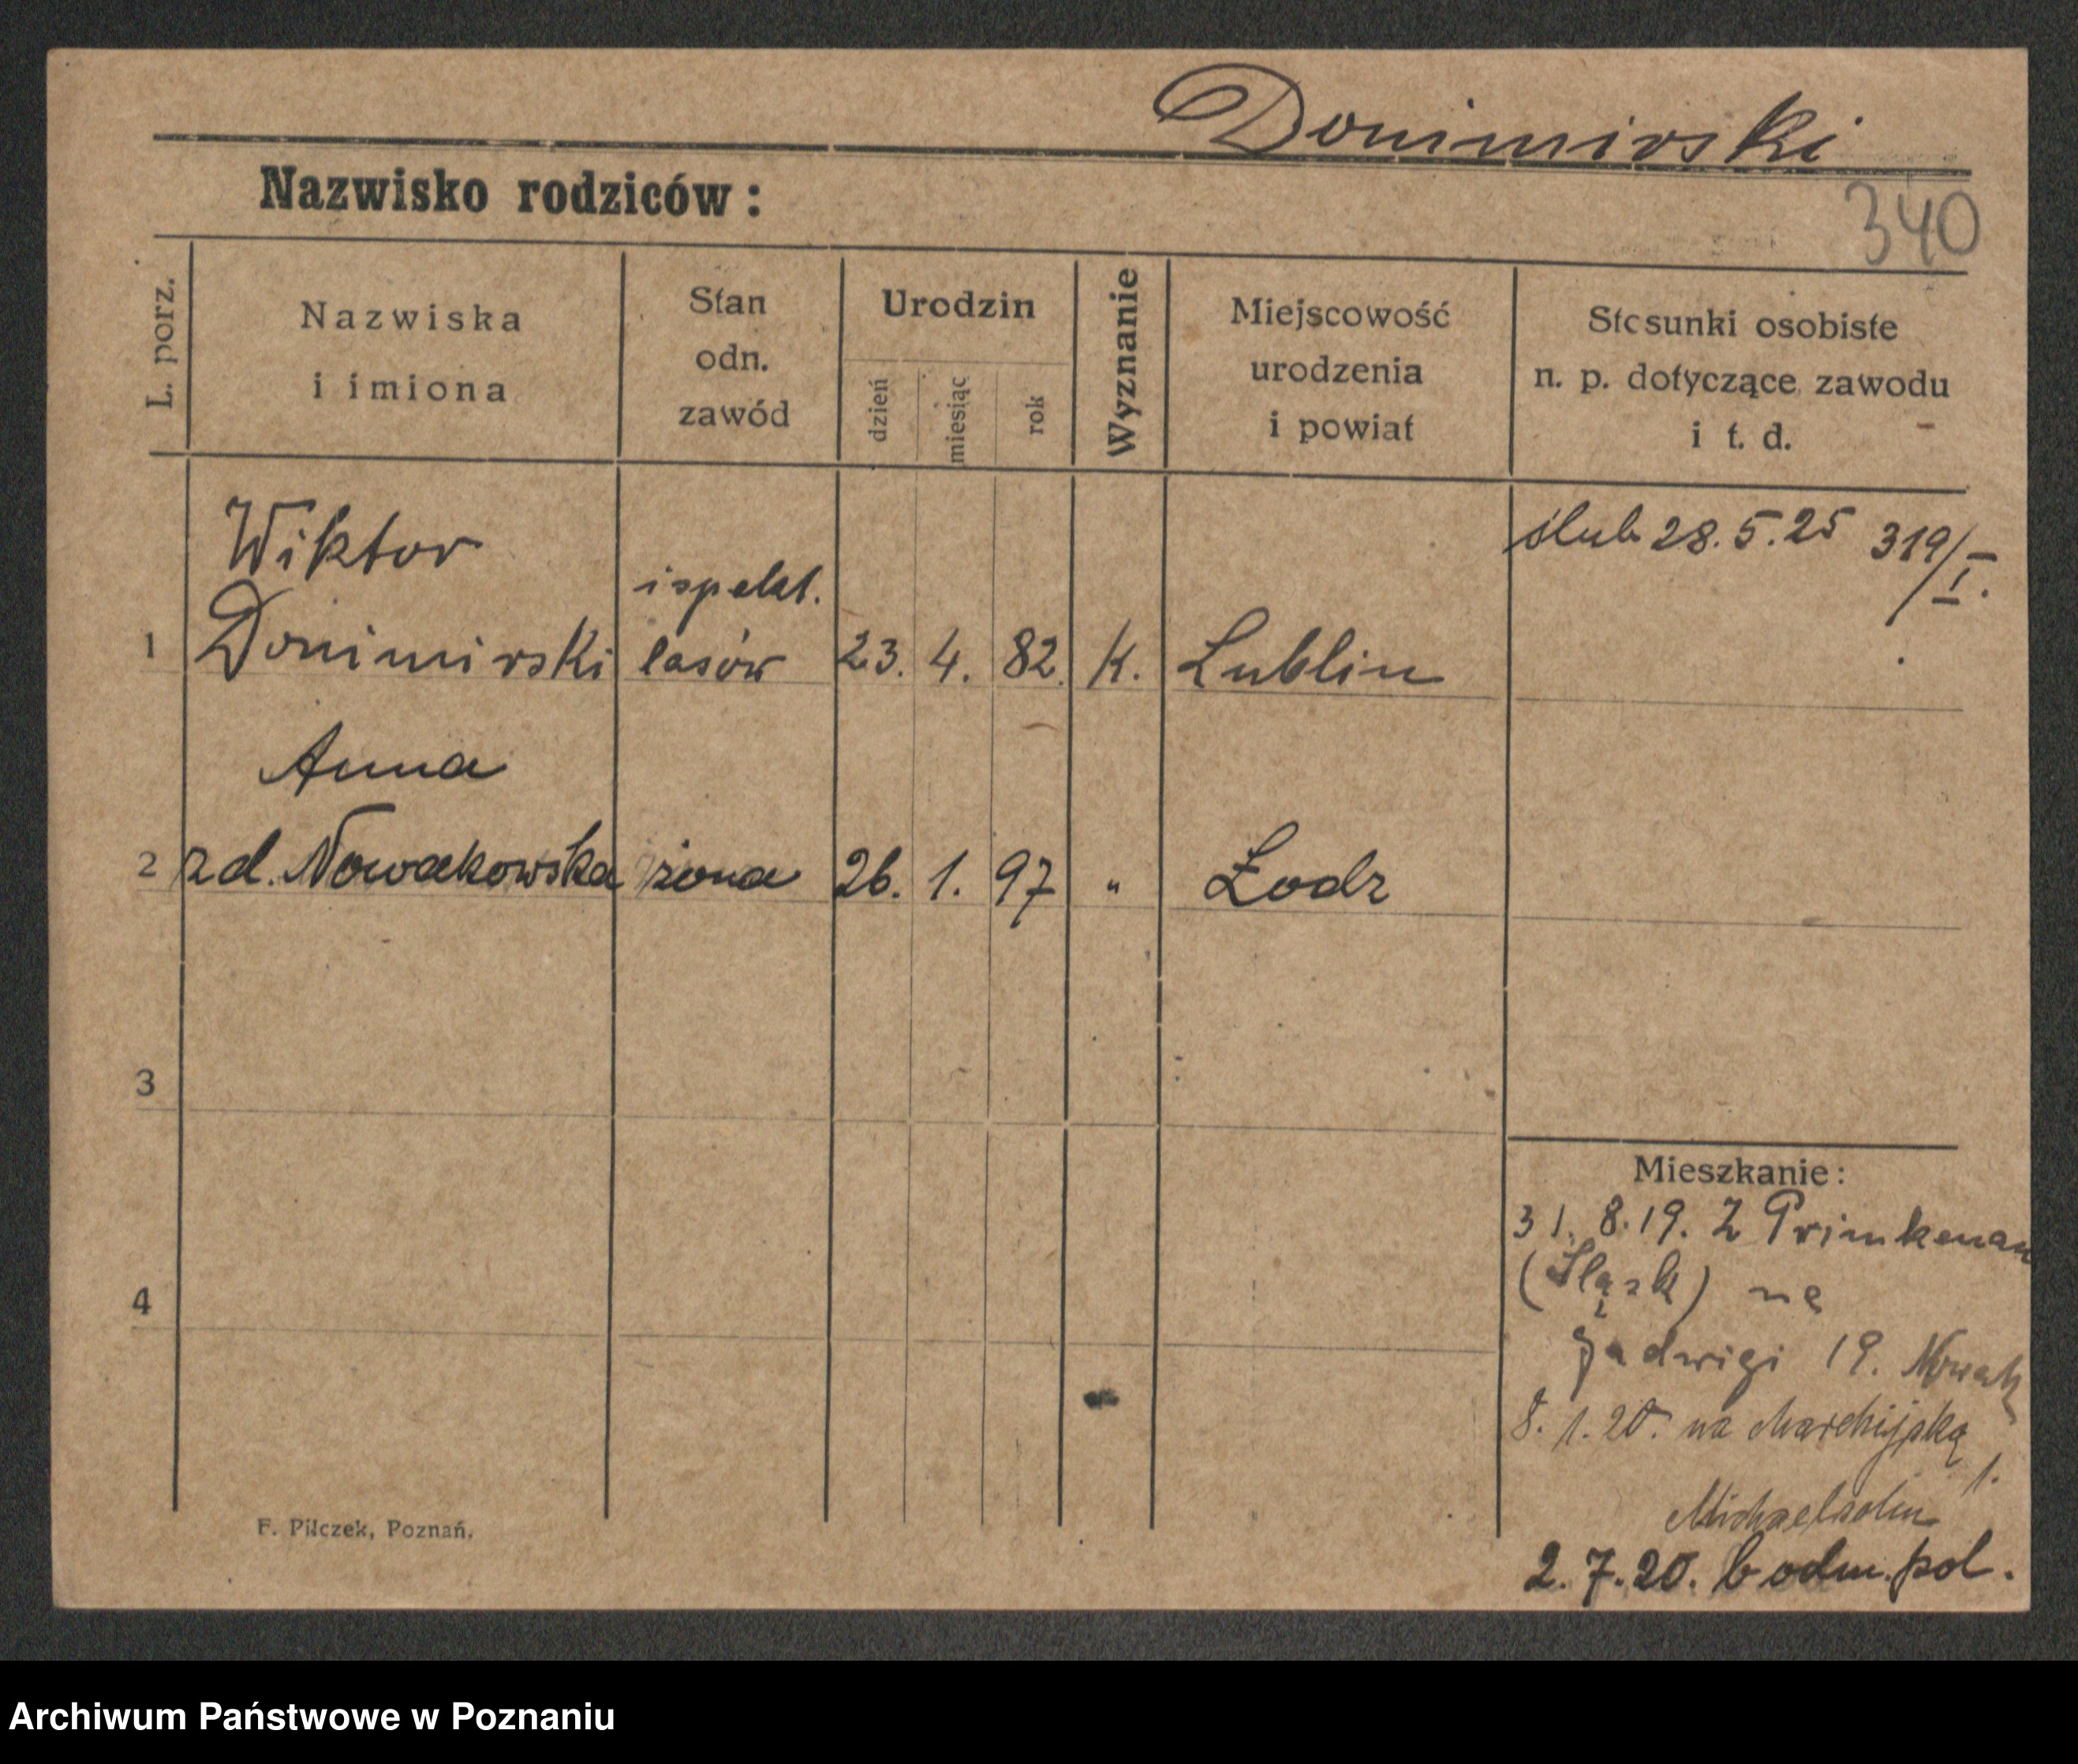 Donimirski
Nazwisko rodziców:
340
L. porz.
Nazwiska
i imiona
Stan
odn.
zawód
Urodzin
dzień
miesiąc
rok
Wyznanie
Miejscowość
urodzenia
i powiat
Stosunki osobiste
n. p. dotyczące zawodu
i t. d.
ślub 28.5.25 319/I.
Wiktor
ispekt.
1 Donimirski lasów 23. 4. 82. K. Lublin
Anna
2 zd. Nowakowska żona 26. 1. 97 " Łodz
3
4
Mieszkanie:
31. 8. 19. Z Primkenau
(Śląsk) na
Jadwigi 19. Nowak
8. 1. 20. na
1.
2. 7. 20. b odm. pol.
F. Pilczek, Poznań.
Archiwum Państwowe w Poznaniu